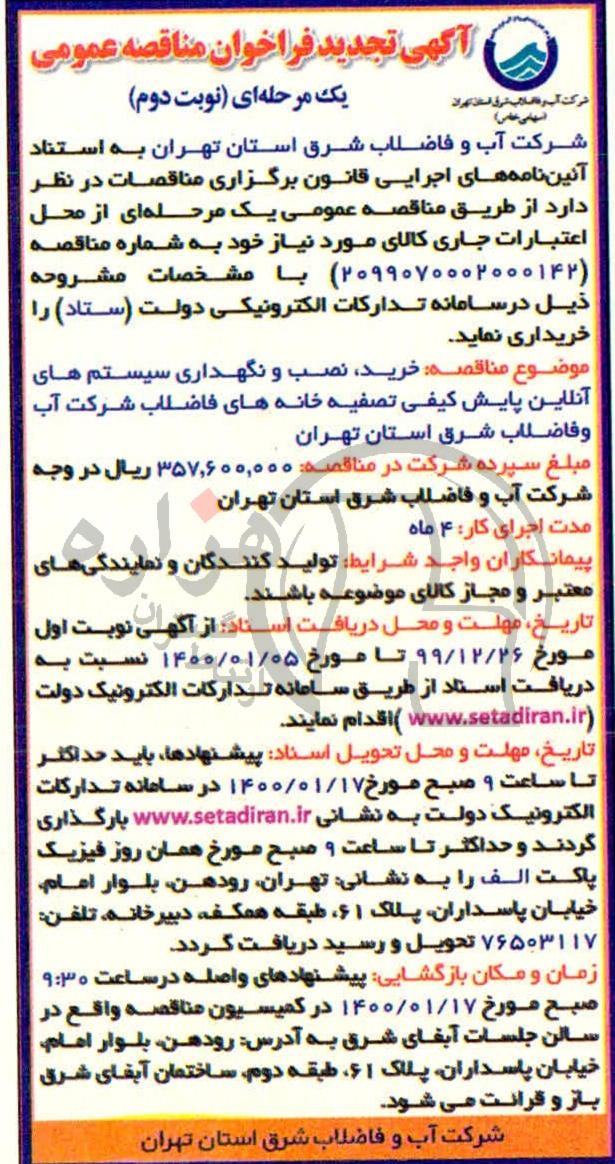 آگهی تجدید فراخوان مناقصه عمومی
یک مرحله‌ای (نوبت دوم)
شرکت آب و فاضلاب شرق استان تهران
(سهامی خاص)
شرکت آب و فاضلاب شرق استان تهران به استناد
آئین‌نامه‌های اجرایی قانون برگزاری مناقصات در نظر
دارد از طریق مناقصه عمومی یک مرحله‌ای از محل
اعتبارات جاری کالای مورد نیاز خود به شماره مناقصه
(۲۰۹۹۰۷۰۰۰۲۰۰۰۱۴۲) با مشخصات مشروحه
ذیل درسامانه تدارکات الکترونیکی دولت (ستاد) را
خریداری نماید.
موضوع مناقصه: خرید، نصب و نگهداری سیستم های
آنلاین پایش کیفی تصفیه خانه های فاضلاب شرکت آب
وفاضلاب شرق استان تهران
مبلغ سپرده شرکت در مناقصه: ۳۵۷,۶۰۰,۰۰۰ ریال در وجه
شرکت آب و فاضلاب شرق استان تهران
مدت اجرای کار: ۴ ماه
پیمانکاران واجد شرایط: تولید کنندگان و نمایندگی‌های
معتبر و مجاز کالای موضوعه باشند.
تاریخ، مهلت و محل دریافت اسناد: از آگهی نوبت اول
مورخ ۹۹/۱۲/۲۶ تا مورخ ۱۴۰۰/۰۱/۰۵ نسبت به
دریافت اسناد از طریق سامانه تدارکات الکترونیک دولت
(www.setadiran.ir )اقدام نمایند.
تاریخ، مهلت و محل تحویل اسناد: پیشنهادها، باید حداکثر
تا ساعت ۹ صبح مورخ۱۴۰۰/۰۱/۱۷ در سامانه تدارکات
الکترونیک دولت به نشانی www.setadiran.ir بارگذاری
گردند و حداکثر تا ساعت ۹ صبح مورخ همان روز فیزیک
پاکت الف را به نشانی: تهران، رودهن، بلوار امام،
خیابان پاسداران، پلاک ۶۱، طبقه همکف، دبیرخانه، تلفن:
۷۶۵۰۳۱۱۷ تحویل و رسید دریافت گردد.
زمان و مکان بازگشایی: پیشنهادهای واصله درساعت ۹:۳۰
صبح مورخ ۱۴۰۰/۰۱/۱۷ در کمیسیون مناقصه واقع در
سالن جلسات آبفای شرق به آدرس: رودهن، بلوار امام،
خیابان پاسداران، پلاک ۶۱، طبقه دوم، ساختمان آبفای شرق
باز و قرائت می شود.
شرکت آب و فاضلاب شرق استان تهران
هزاره